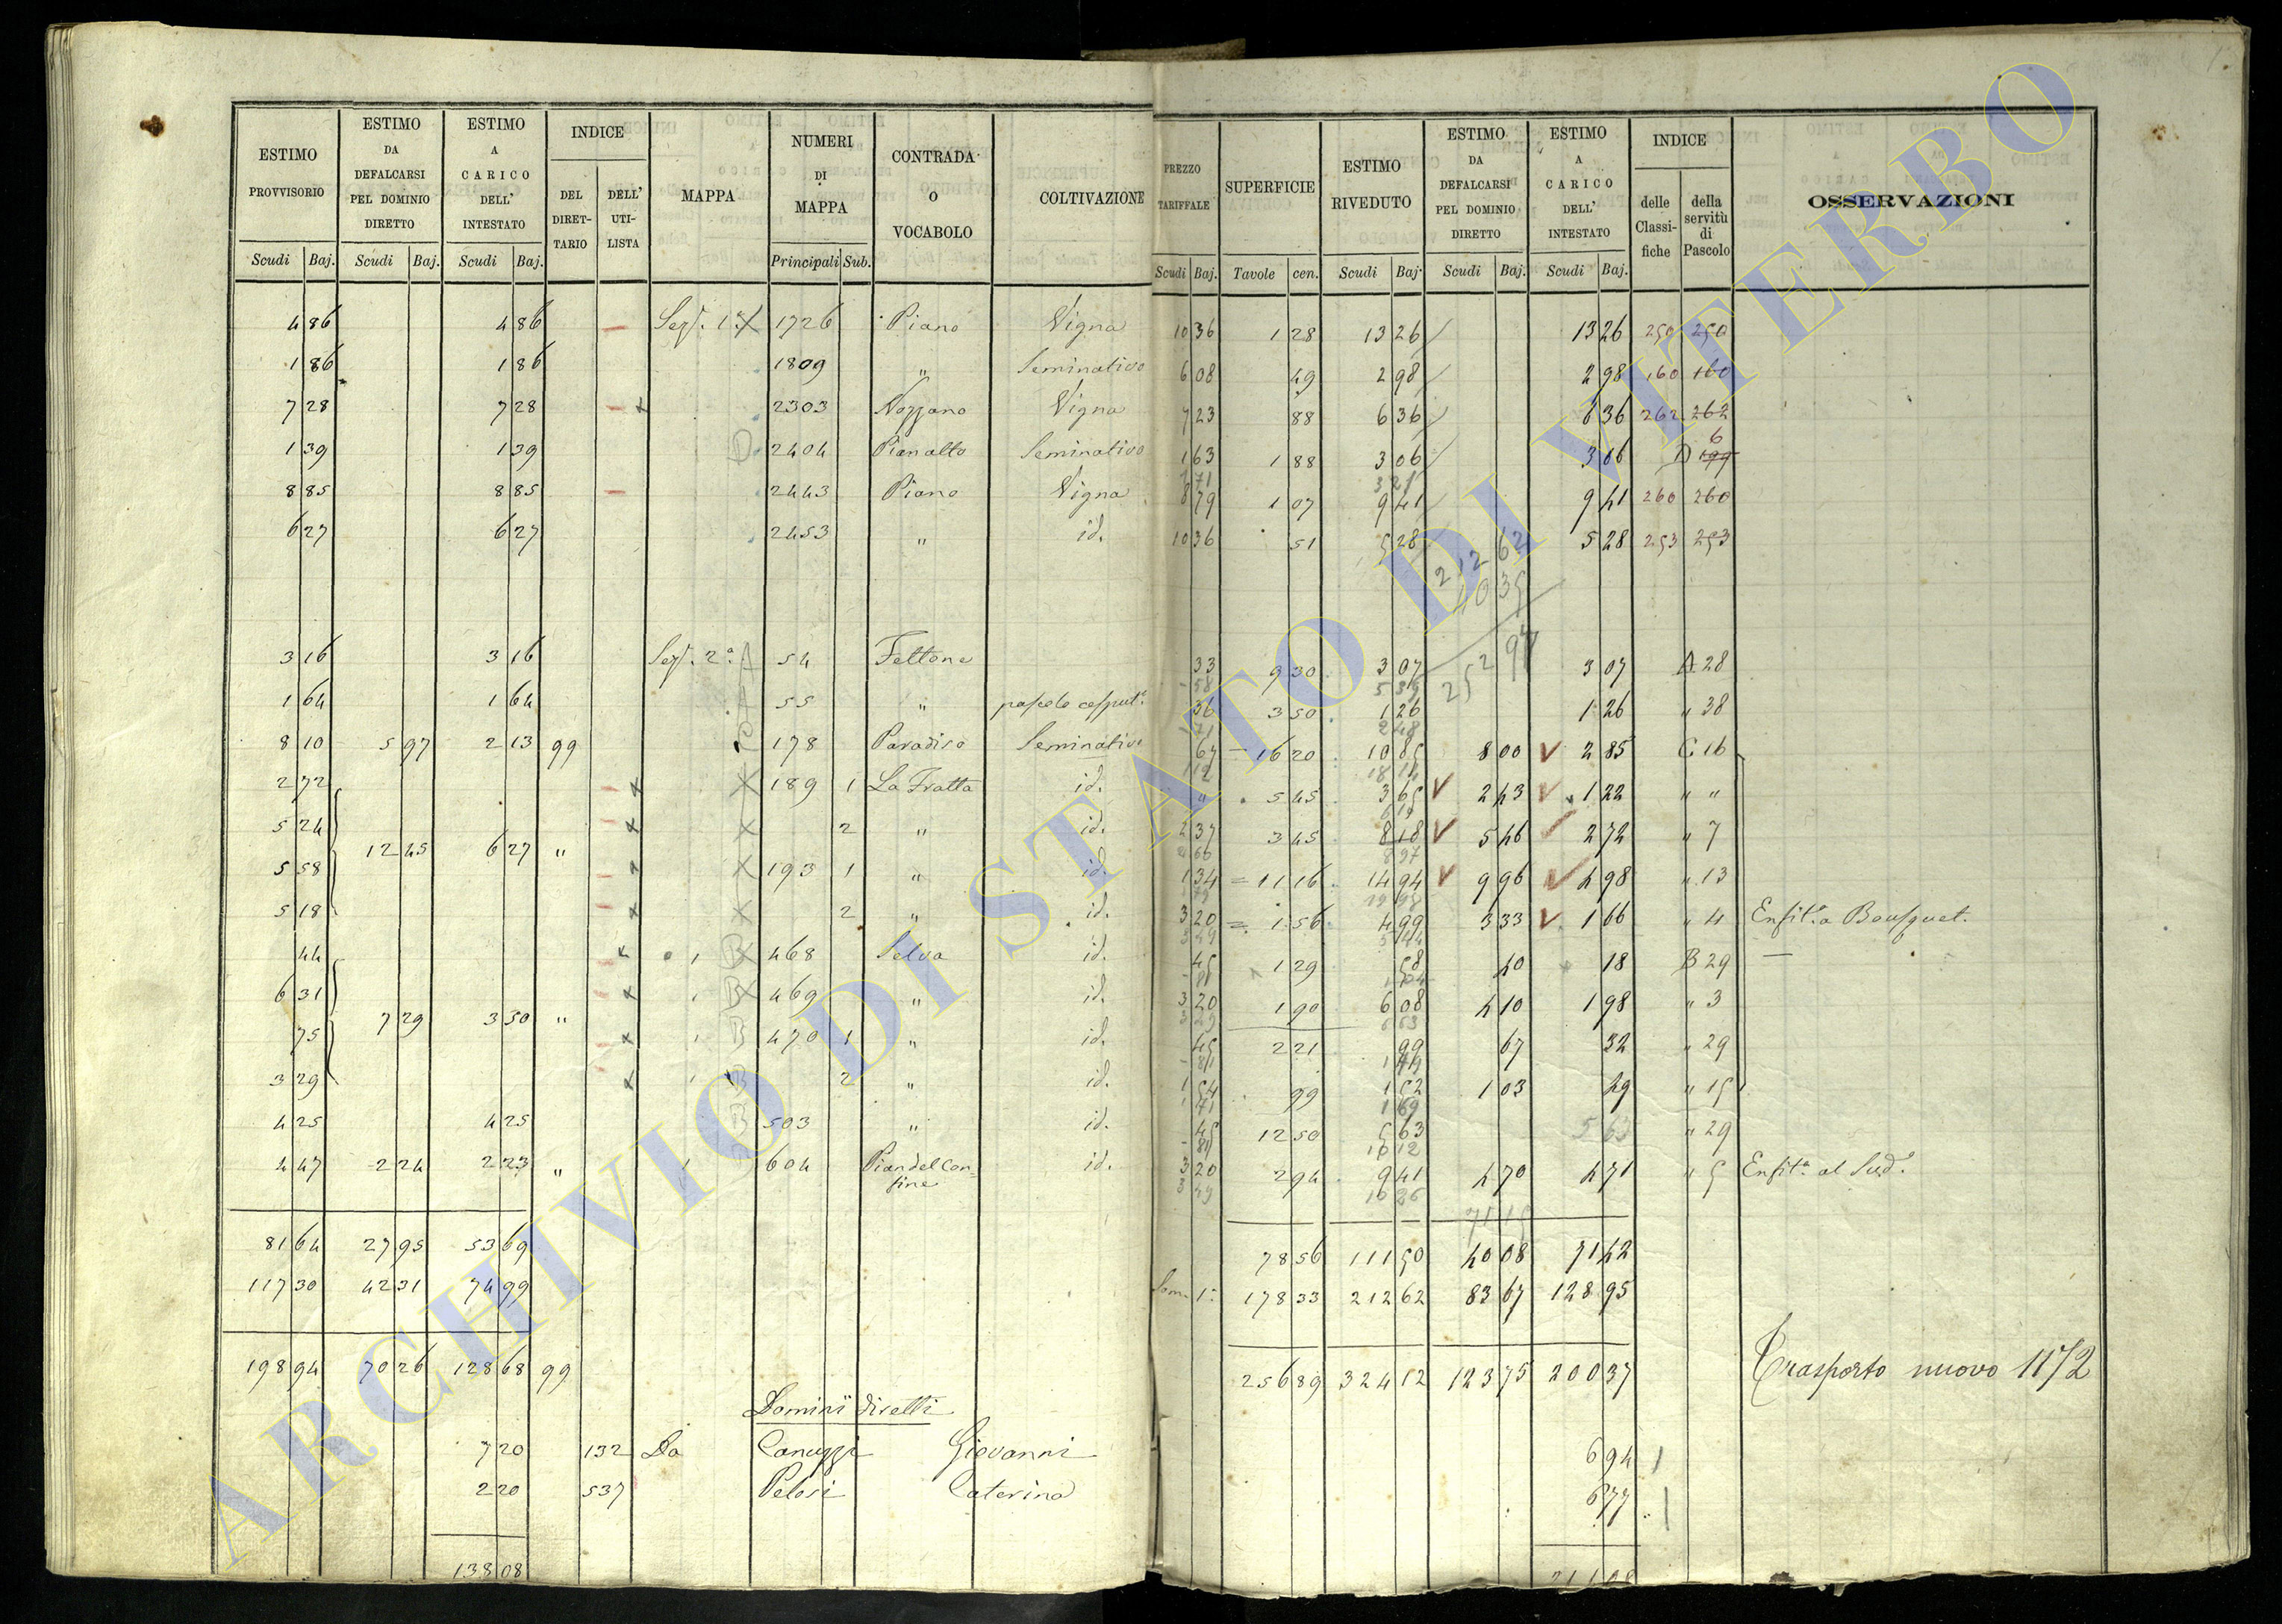 ESTIMO PROVVISORIO
ESTIMO DA DEFALCARSI PEL DOMINIO DIRETTO
ESTIMO A CARICO DELL' INTESTATO
INDICE
DEL DIRET-TARIO
DELL' UTI-LISTA
MAPPA
NUMERI DI MAPPA
CONTRADA O VOCABOLO
COLTIVAZIONE
Scudi Baj. Scudi Baj. Scudi Baj. Principali Sub.
PREZZO TARIFFALE
SUPERFICIE
ESTIMO RIVEDUTO
ESTIMO DA DEFALCARSI PEL DOMINIO DIRETTO
ESTIMO A CARICO DELL' INTESTATO
INDICE
delle Classi-fiche
della servitù di Pascolo
OSSERVAZIONI
Scudi Baj. Tavole cen. Scudi Baj. Scudi Baj. Scudi Baj.
4 86 4 86 Sez. 1ª 1726 Piano Vigna 10 36 1 28 13 26 13 26 250 250
1 86 1 86 1809 " Seminativo 6 08 49 2 98 2 98 160 160
7 28 7 28 2303 Nozzano Vigna 7 23 88 6 36 6 36 262 262
1 39 1 39 2404 Pianalto Seminativo 1 63 1 88 3 06 3 06 D 199 6
8 85 8 85 2443 Piano Vigna 8 79 1 07 9 41 9 41 260 260
6 27 6 27 2453 " id. 10 36 51 5 28 5 28 253 253
212 62
252 97
3 16 3 16 Sez. 2ª A 54 Feltone 33 9 30 3 07 3 07 A 28
1 64 1 64 55 " 36 3 50 1 26 1 26 " 38
8 10 5 97 2 13 99 178 Paradiso Seminativo 67 16 20 10 85 8 00 2 85 C 16
2 72 189 1 La Fratta id. " 5 45 3 65 2 43 1 22 " "
5 24 2 " id. 2 37 3 45 8 18 5 46 2 72 " 7
12 45 6 27 "
5 58 193 1 " id. 1 34 11 16 14 94 9 96 4 98 " 13
5 18 2 " id. 3 20 1 56 4 99 3 33 1 66 " 4 Enfit. a Bousquet.
44 468 Selva id. 45 1 29 58 40 18 B 29
6 31 469 " id. 3 20 1 90 6 08 4 10 1 98 " 3
7 29 3 50 "
75 470 1 " id. 45 2 21 99 67 32 " 29
3 29 2 " id. 1 54 99 1 52 1 03 49 " 15
4 25 4 25 503 " id. 45 12 50 5 63 5 63 " 29
4 47 2 24 2 23 " 604 Pian del Con-fine id. 3 20 2 94 9 41 4 70 4 71 " 5 Enfit.
81 64 27 95 53 69 78 56 111 50 40 08 71 42
117 30 42 31 74 99 Som. 1ª 178 33 212 62 83 67 128 95
198 94 70 26 128 68 99 256 89 324 12 123 75 200 37
Trasporto nuovo 1172
Dominii diretti
7 20 132 Da Canuzzi Giovanni 6 94
2 20 537 Pelosi Caterina 6 77
138 08
ARCHIVIO DI STATO DI VITERBO